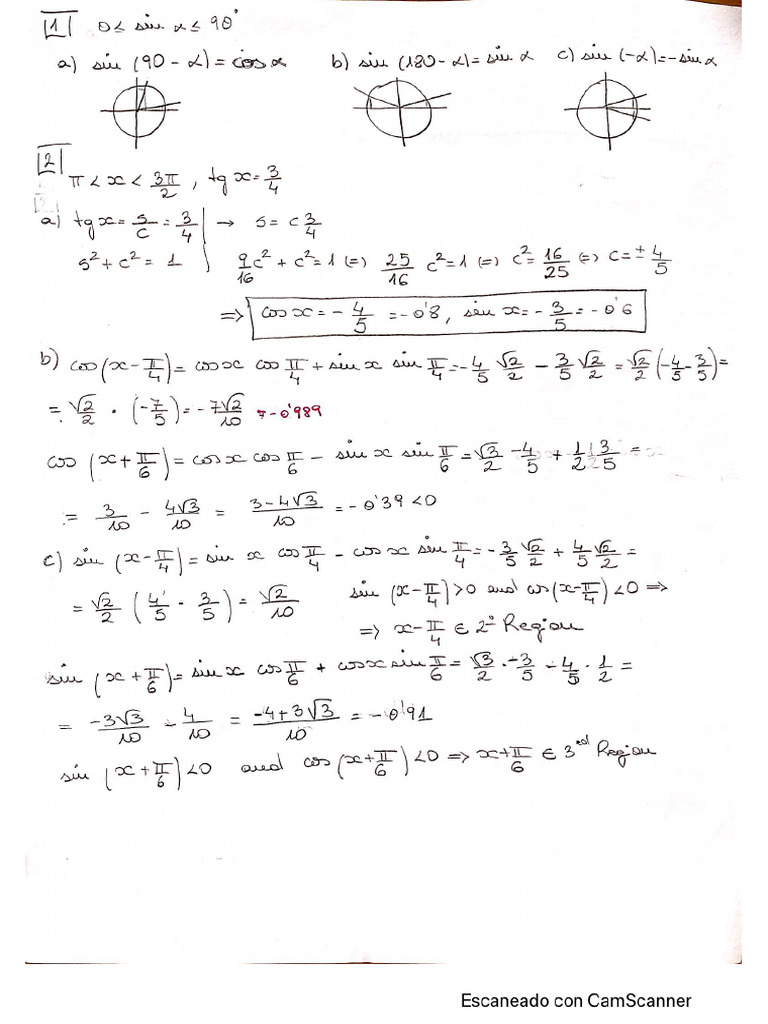 1 0 ≤ sin α ≤ 90°
a) sin (90 - α) = cos α b) sin (180 - α) = sin α c) sin (-α) = - sin α
2 π < x < 3π/2 , tg x = 3/4
a) tg x = s/c = 3/4 → s = c 3/4
s² + c² = 1 9/16 c² + c² = 1 (=) 25/16 c² = 1 (=) c² = 16/25 (=) c = ± 4/5
=> cos x = - 4/5 = -0'8 , sen x = - 3/5 = -0'6
b) cos (x - π/4) = cos x cos π/4 + sin x sin π/4 = - 4/5 √2/2 - 3/5 √2/2 = √2/2 (-4/5 - 3/5) =
= √2/2 · (-7/5) = - 7√2/10 = -0'989
cos (x + π/6) = cos x cos π/6 - sin x sin π/6 = √3/2 · -4/5 + 1/2 · 3/5 =
= 3/10 - 4√3/10 = 3 - 4√3/10 = -0'39 < 0
c) sin (x - π/4) = sin x cos π/4 - cos x sin π/4 = - 3/5 √2/2 + 4/5 √2/2 =
= √2/2 (4/5 - 3/5) = √2/10 sin (x - π/4) > 0 and cos (x - π/4) < 0 =>
=> x - π/4 ∈ 2nd Region
sin (x + π/6) = sin x cos π/6 + cos x sin π/6 = √3/2 · -3/5 - 4/5 · 1/2 =
= -3√3/10 - 4/10 = -4 + 3√3/10 = -0'91
sin (x + π/6) < 0 and cos (x + π/6) < 0 => x + π/6 ∈ 3rd Region
Escaneado con CamScanner